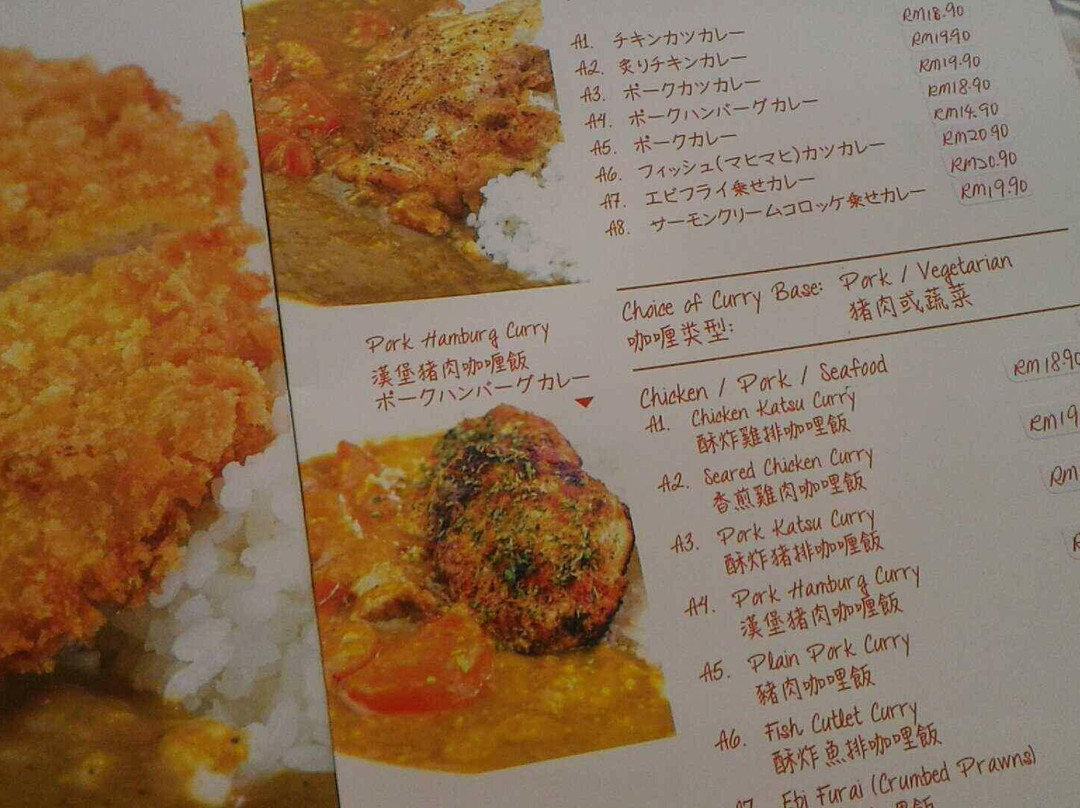 A1. チキンカツカレー RM18.90
A2. 炙りチキンカレー RM19.90
A3. ポークカツカレー RM19.90
A4. ポークハンバーグカレー RM18.90
A5. ポークカレー RM14.90
A6. フィッシュ(マヒマヒ)カツカレー RM20.90
A7. エビフライ乗せカレー RM20.90
A8. サーモンクリームコロッケ乗せカレー RM19.90
Choice of Curry Base: Pork / Vegetarian
咖喱类型: 猪肉或蔬菜
Pork Hamburg Curry
漢堡猪肉咖喱飯
ポークハンバーグカレー
Chicken / Pork / Seafood
A1. Chicken Katsu Curry RM18.90
酥炸雞排咖喱飯
A2. Seared Chicken Curry RM19
香煎雞肉咖喱飯
A3. Pork Katsu Curry RM
酥炸猪排咖喱飯
A4. Pork Hamburg Curry R
漢堡猪肉咖喱飯
A5. Plain Pork Curry
猪肉咖喱飯
A6. Fish Cutlet Curry
酥炸魚排咖喱飯
Ebi Furai (Crumbed Prawns)